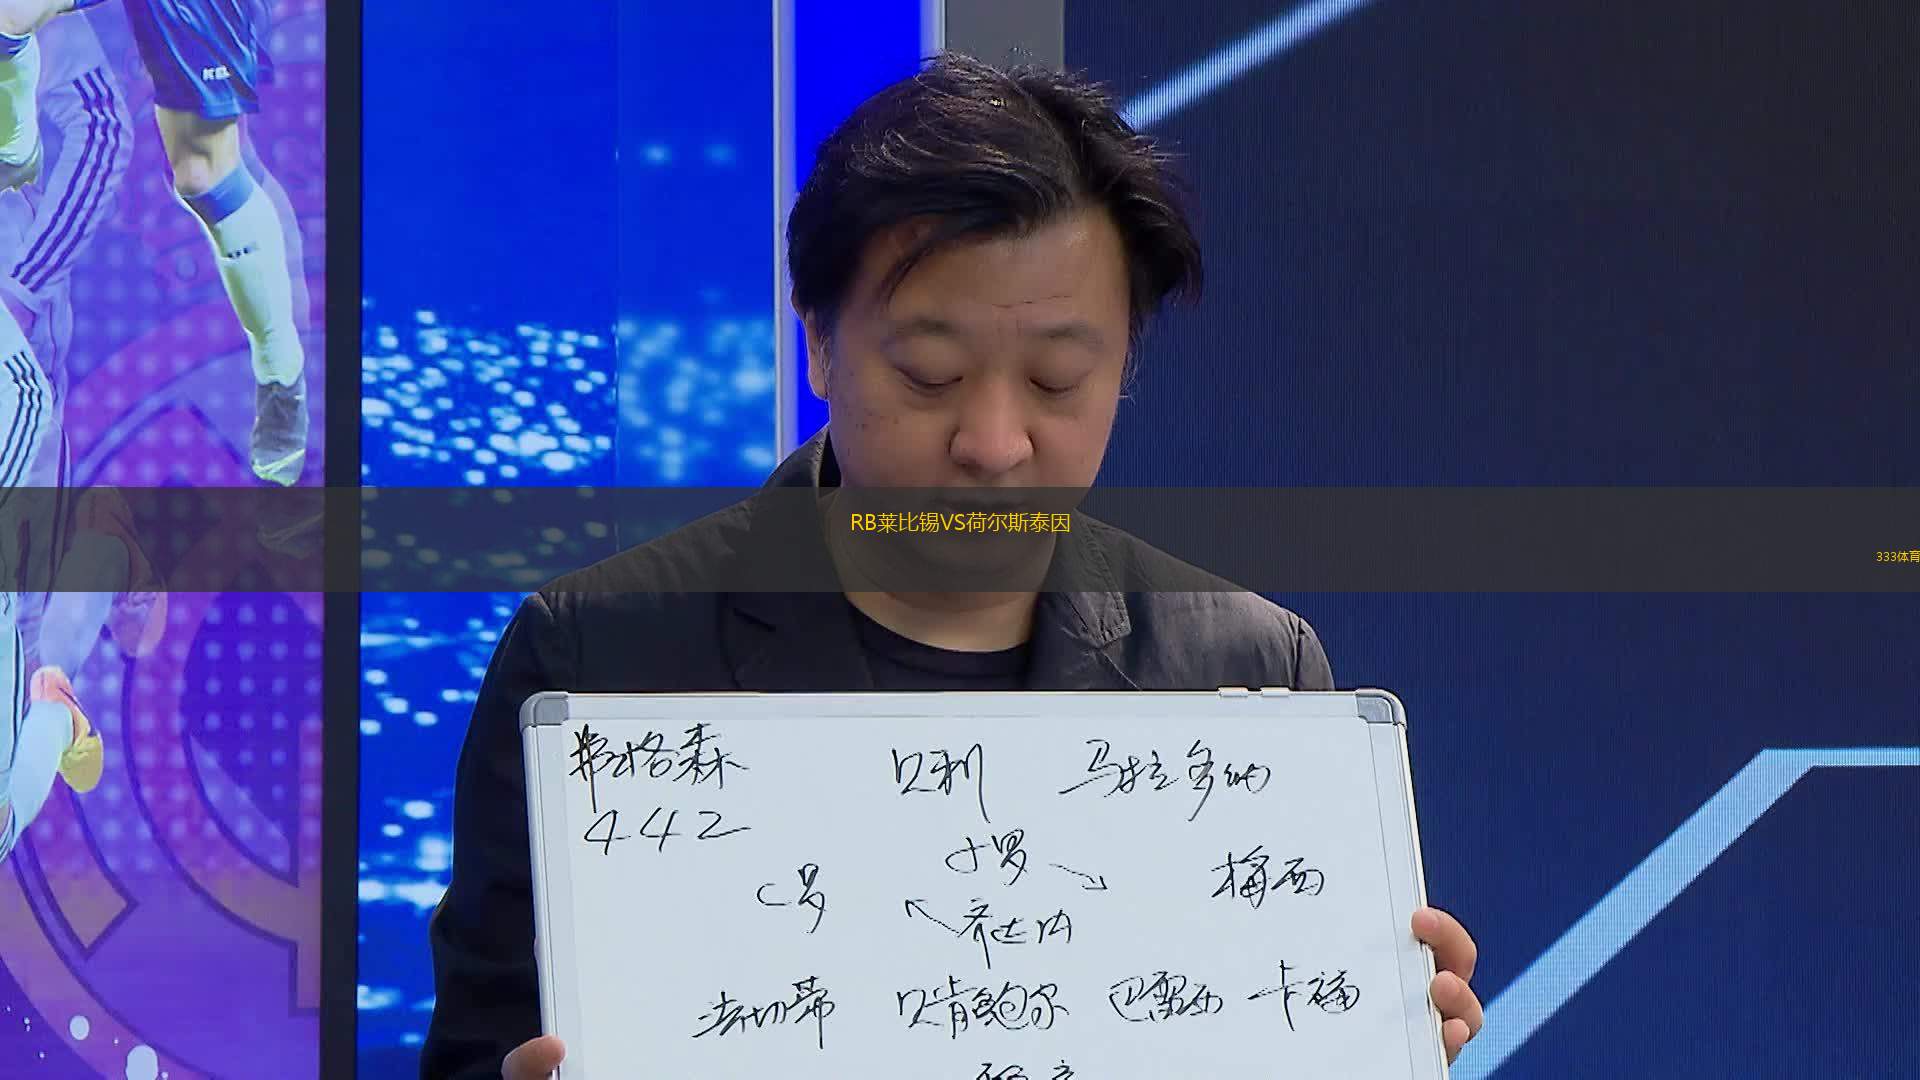 RB莱比锡VS荷尔斯泰因
333体育
弗格森 贝利 马拉多纳
442
小罗
C罗 梅西
齐达内
法切蒂 贝肯鲍尔 巴雷西 卡福